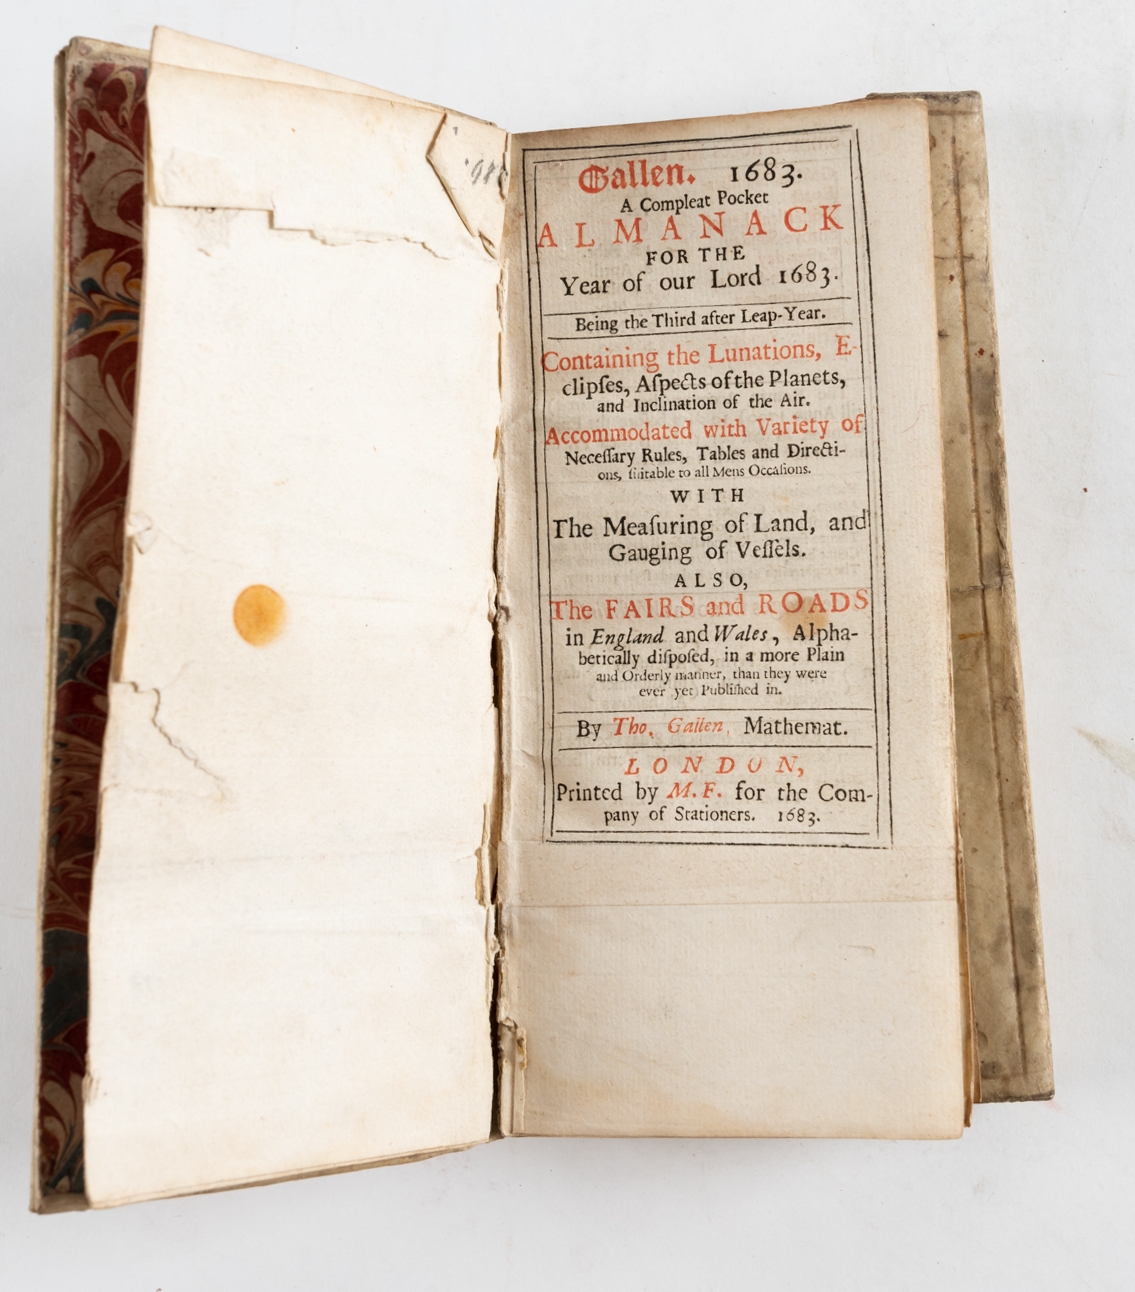 Gallen. 1683.
A Compleat Pocket
ALMANACK
FOR THE
Year of our Lord 1683.
Being the Third after Leap-Year.
Containing the Lunations, E-
clipſes, Aſpects of the Planets,
and Inclination of the Air.
Accommodated with Variety of
Neceſſary Rules, Tables and Directi-
ons, ſuitable to all Mens Occaſions.
WITH
The Meaſuring of Land, and
Gauging of Veſſels.
ALSO,
The FAIRS and ROADS
in England and Wales, Alpha-
betically diſpoſed, in a more Plain
and Orderly manner, than they were
ever yet Publiſhed in.
By Tho. Gallen, Mathemat.
LONDON,
Printed by M.F. for the Com-
pany of Stationers. 1683.